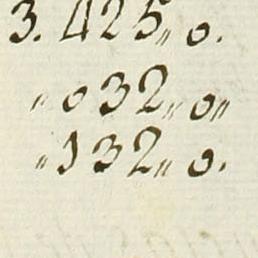 3.425,,0.
,,032,,0,,
,,132,,0.